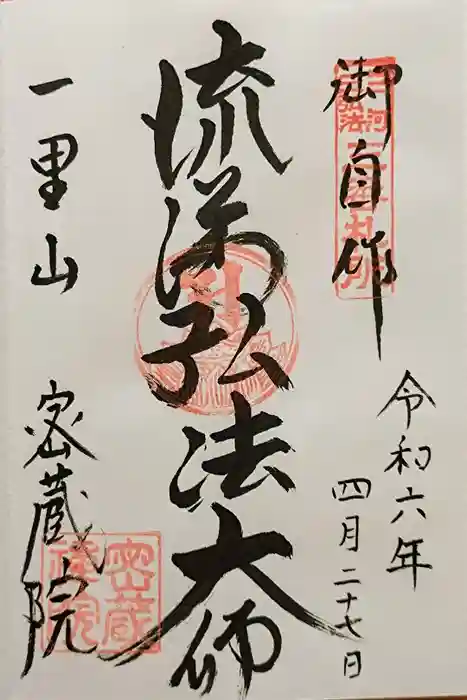 御自作
令和六年
四月二十七日
流涕弘法大師
一里山
密蔵院
三河
弘法
密蔵